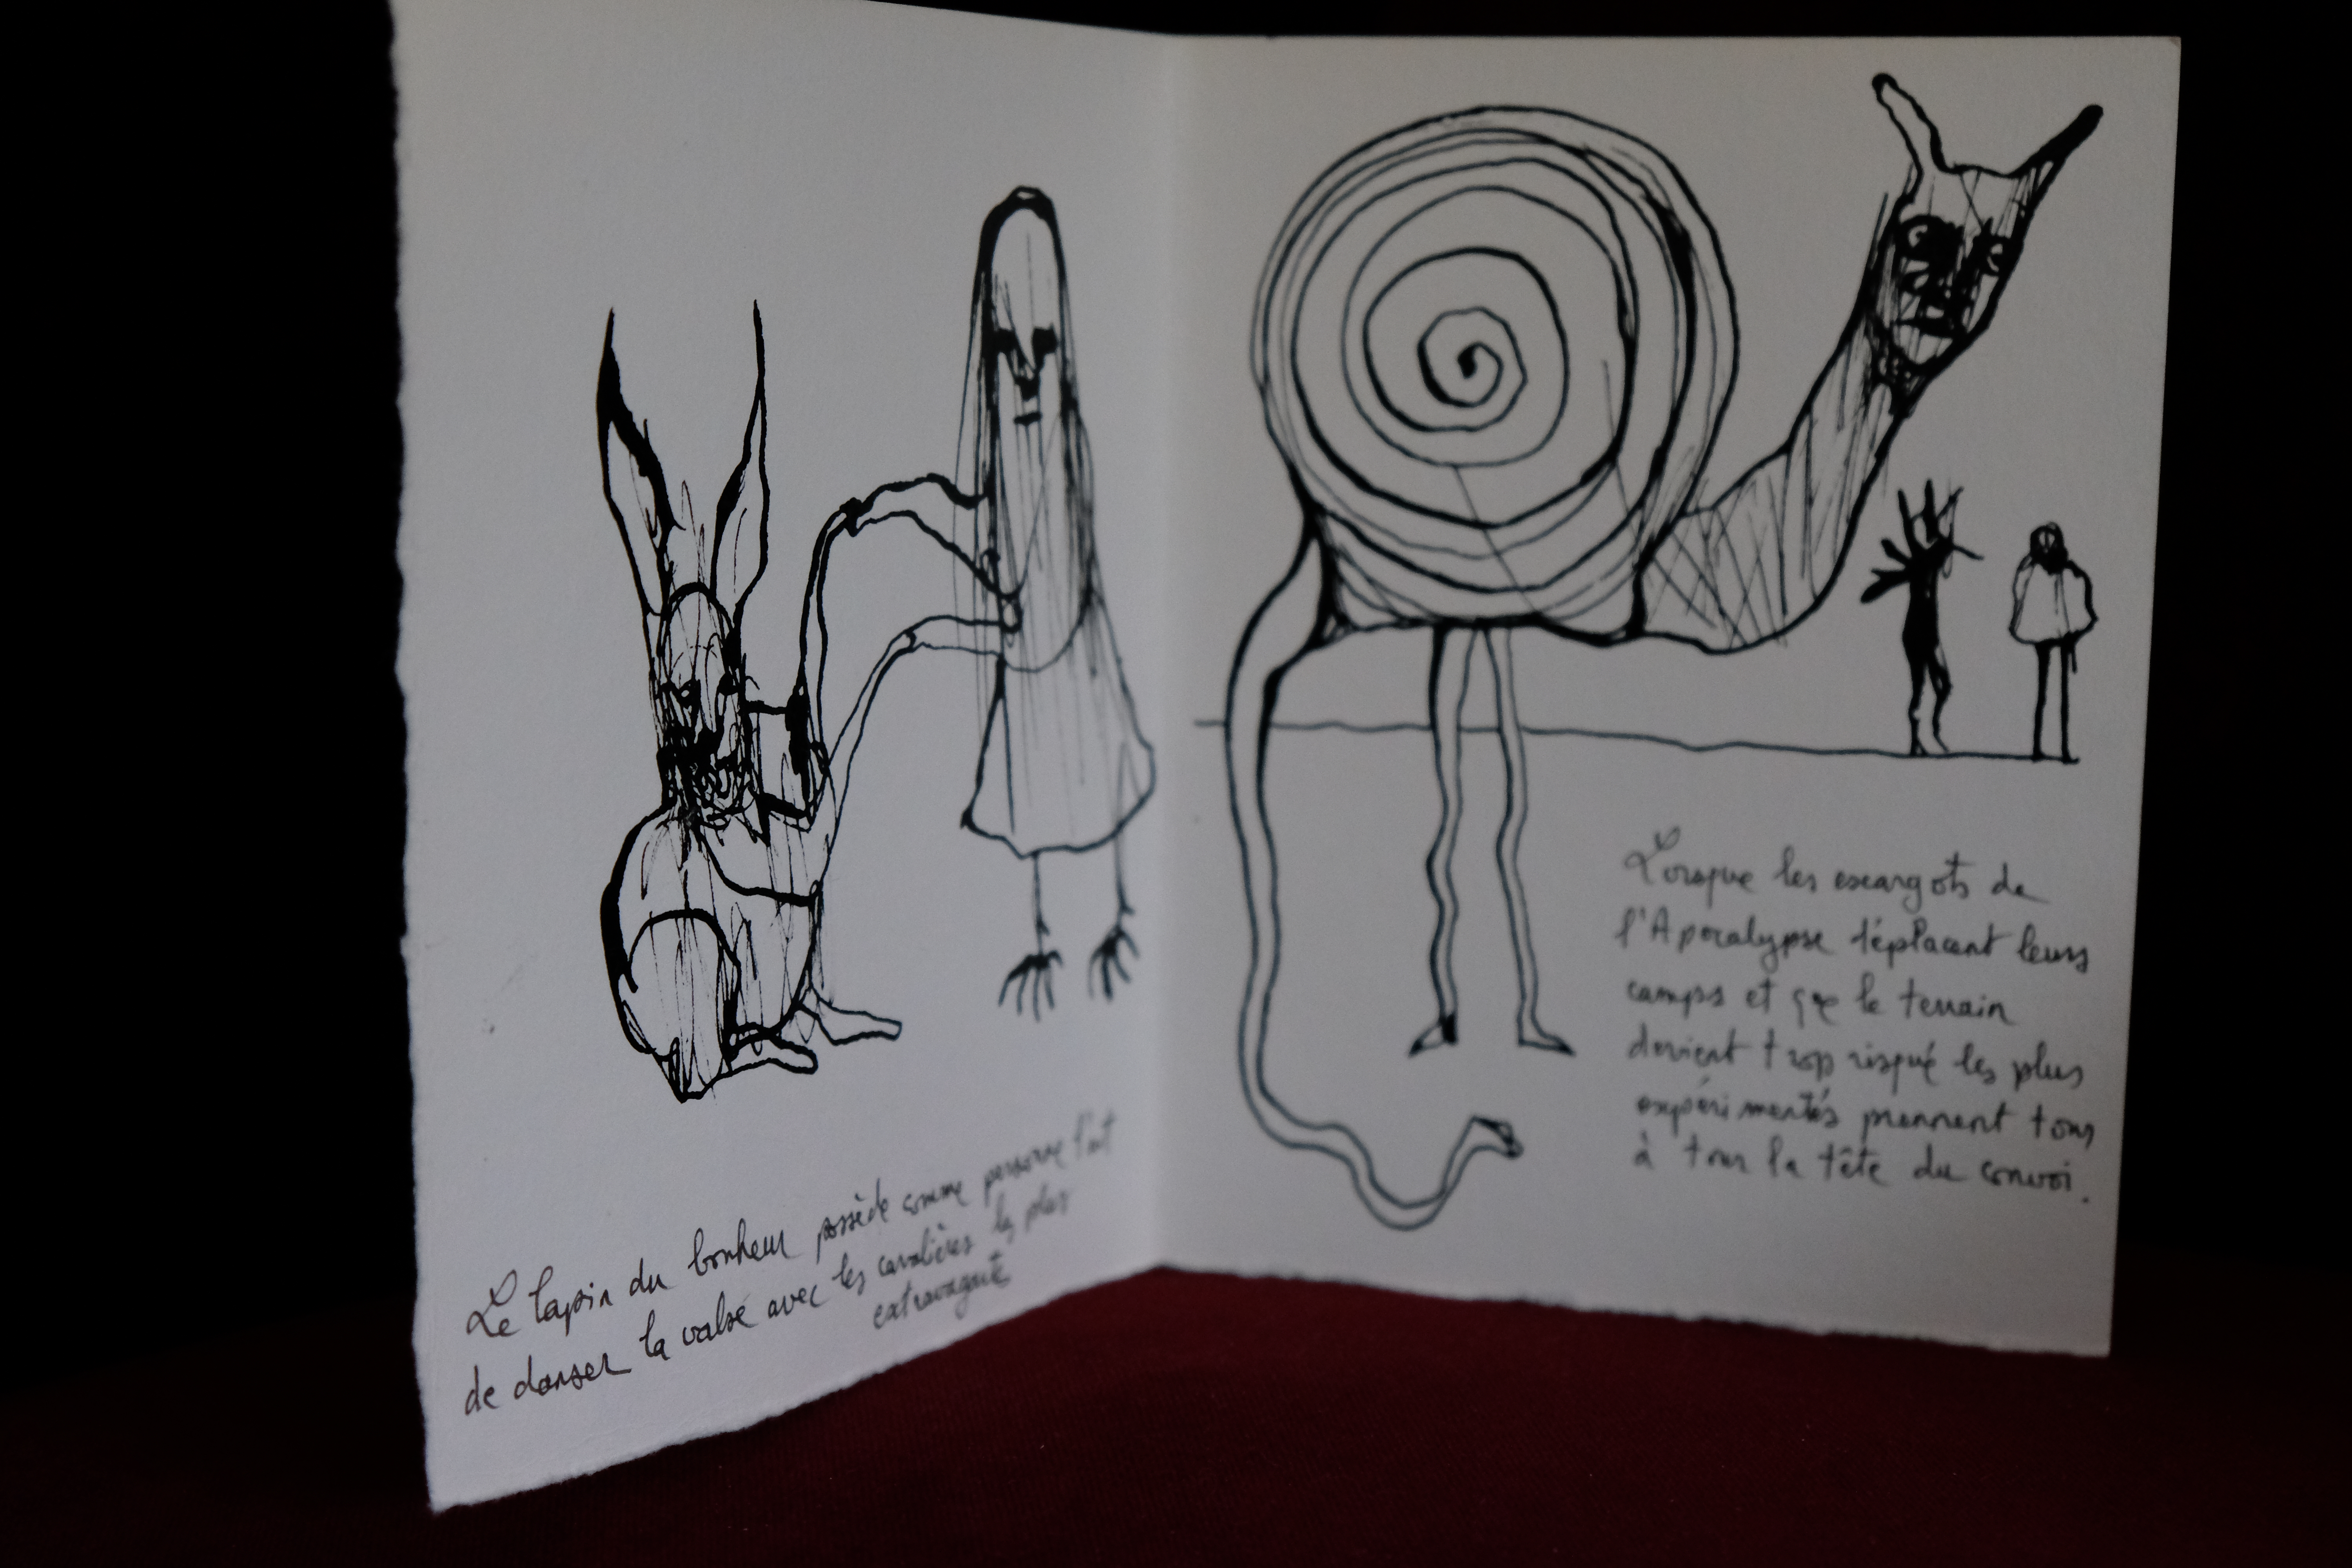 Le lapin du bonheur possède comme personne l'art
de danser la valse avec les cavalières les plus
extravagante
Lorsque les escargots de
l'Apocalypse déplacent leurs
camps et que le terrain
devient trop risqué les plus
expérimentés prennent tous
à tour la tête du convoi.